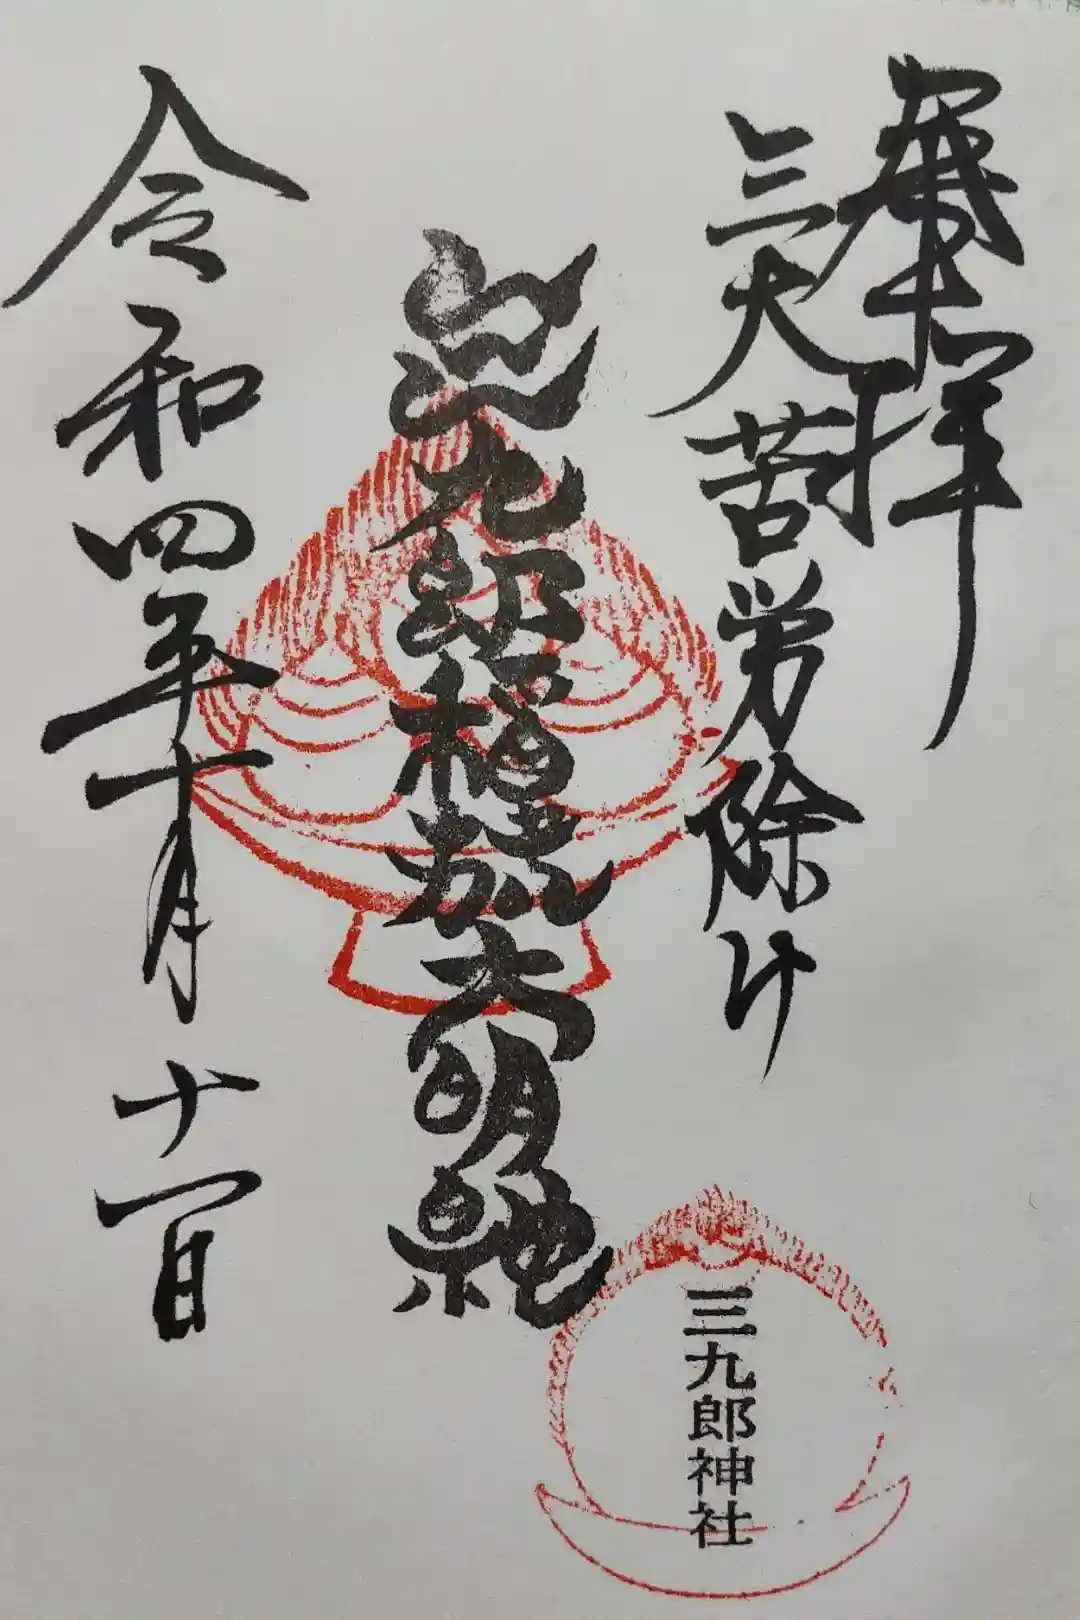 奉拝
三大苦労除け
三九郎稲荷大明神
令和四年十月十一日
三九郎神社